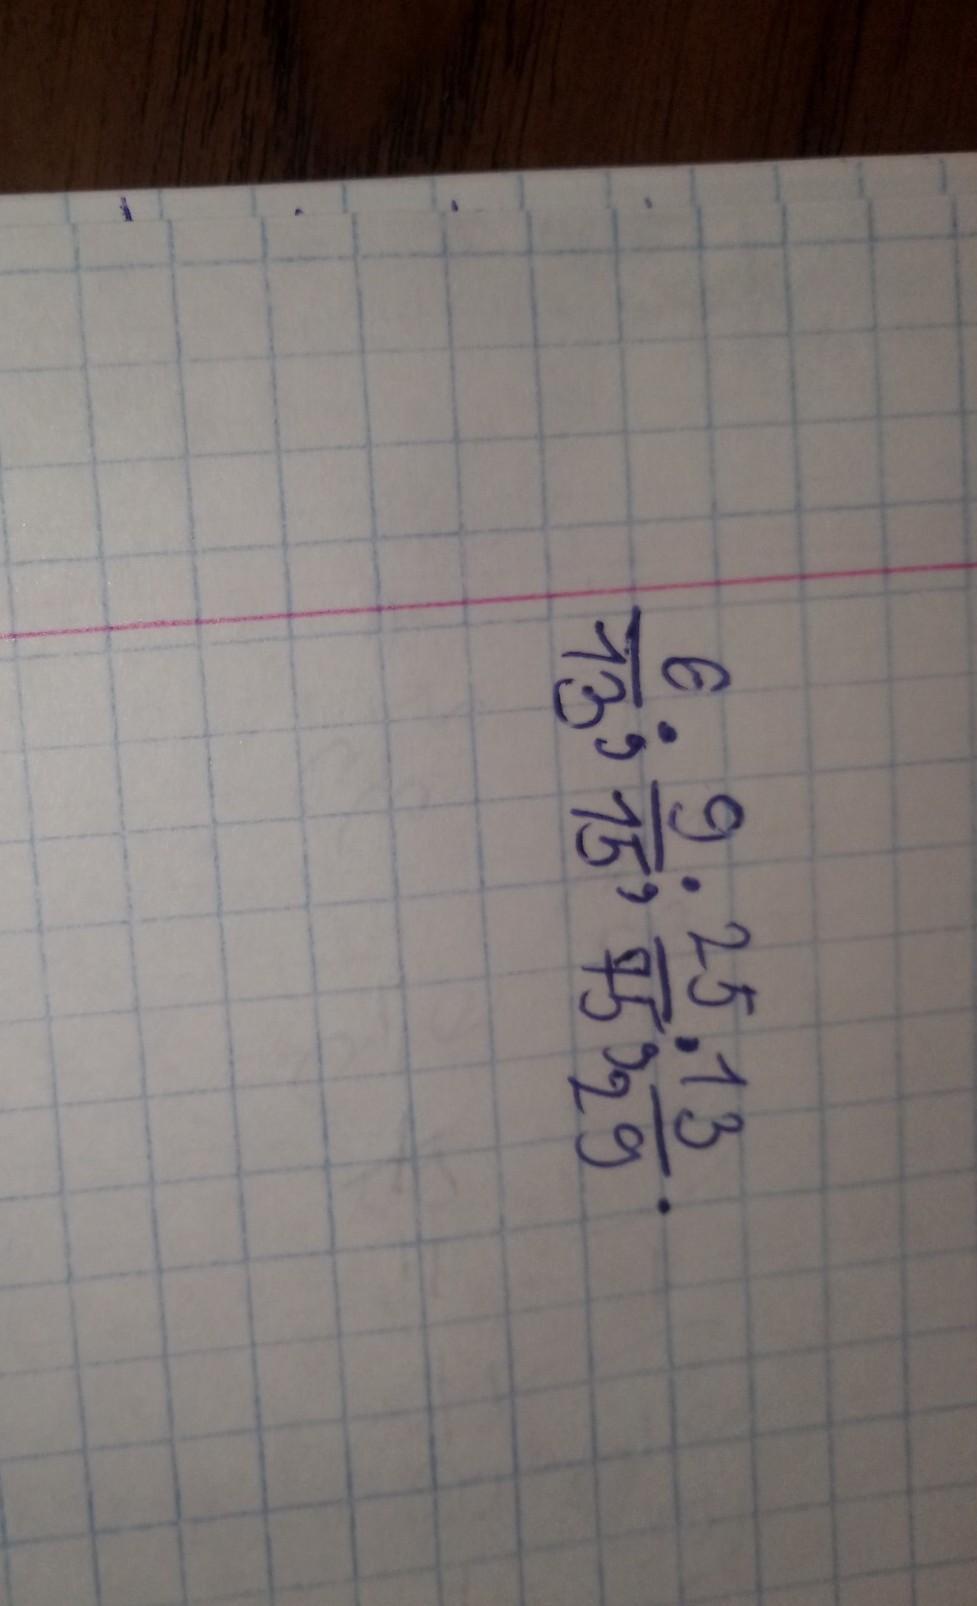 6/13; 9/15; 25/75; 13/29.